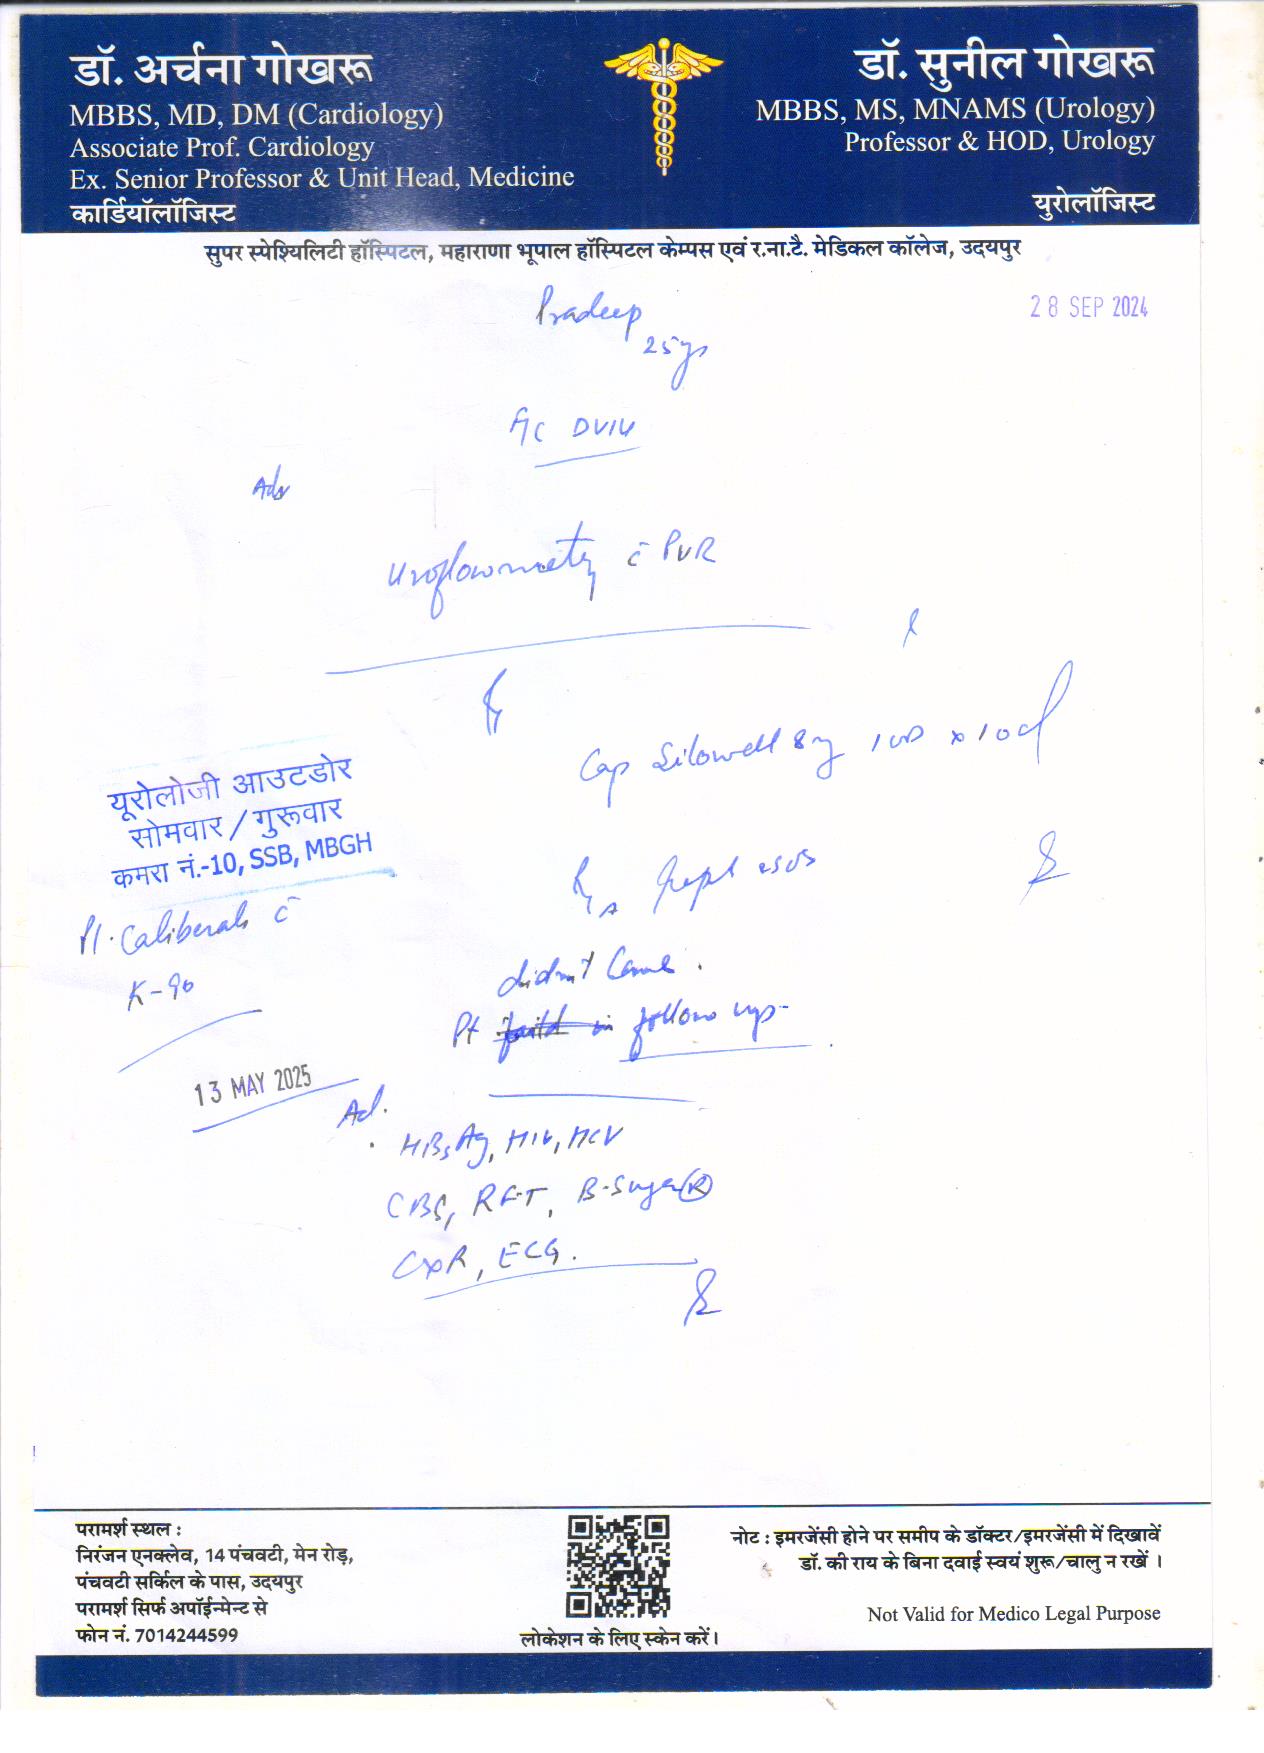 डॉ. अर्चना गोखरू
MBBS, MD, DM (Cardiology)
Associate Prof. Cardiology
Ex. Senior Professor & Unit Head, Medicine
कार्डियॉलॉजिस्ट
डॉ. सुनील गोखरू
MBBS, MS, MNAMS (Urology)
Professor & HOD, Urology
युरोलॉजिस्ट
सुपर स्पेश्यिलिटी हॉस्पिटल, महाराणा भूपाल हॉस्पिटल केम्पस एवं र.ना.टै. मेडिकल कॉलेज, उदयपुर
28 SEP 2024
Pradeep
25yr
DVIU
Adv
Uroflowmetry c̄ PVR
Cap Silowell 8mg 1 OD x 10d
यूरोलोजी आउटडोर
सोमवार / गुरूवार
कमरा नं.-10, SSB, MBGH
didn't Come.
Pt in follow up-
13 MAY 2025
Ad.
HBsAg, HIV, HCV
CBC, RFT, B-Sugar (R)
CXR, ECG.
परामर्श स्थल :
निरंजन एनक्लेव, 14 पंचवटी, मेन रोड़,
पंचवटी सर्किल के पास, उदयपुर
परामर्श सिर्फ अपॉईन्मेन्ट से
फोन नं. 7014244599
लोकेशन के लिए स्केन करें।
नोट : इमरजेंसी होने पर समीप के डॉक्टर/इमरजेंसी में दिखावें
डॉ. की राय के बिना दवाई स्वयं शुरू/चालु न रखें ।
Not Valid for Medico Legal Purpose